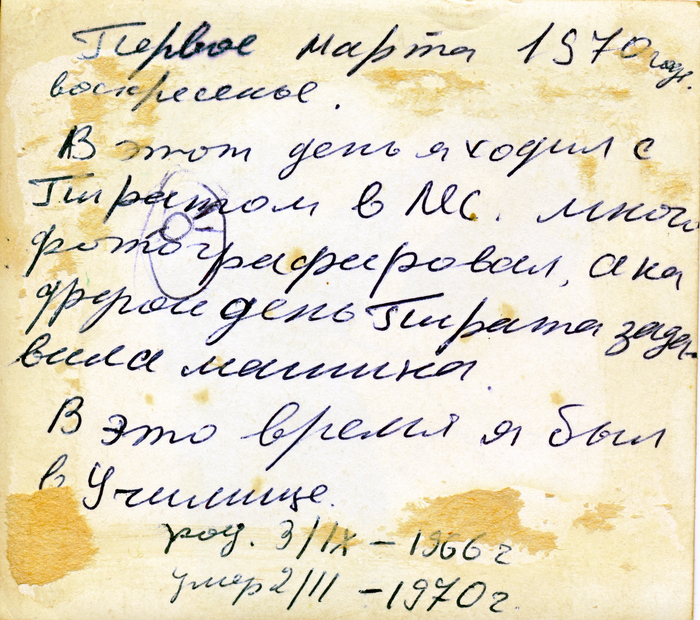 Первое марта 1970 года.
воскресенье.
В этот день я ходил с
Пиратом в МС. много
фотографировал, а на
другой день Пирата зада-
вила машина.
В это время я был
в Училище.
род. 3/IX – 1966 г
умер 2/II – 1970 г.